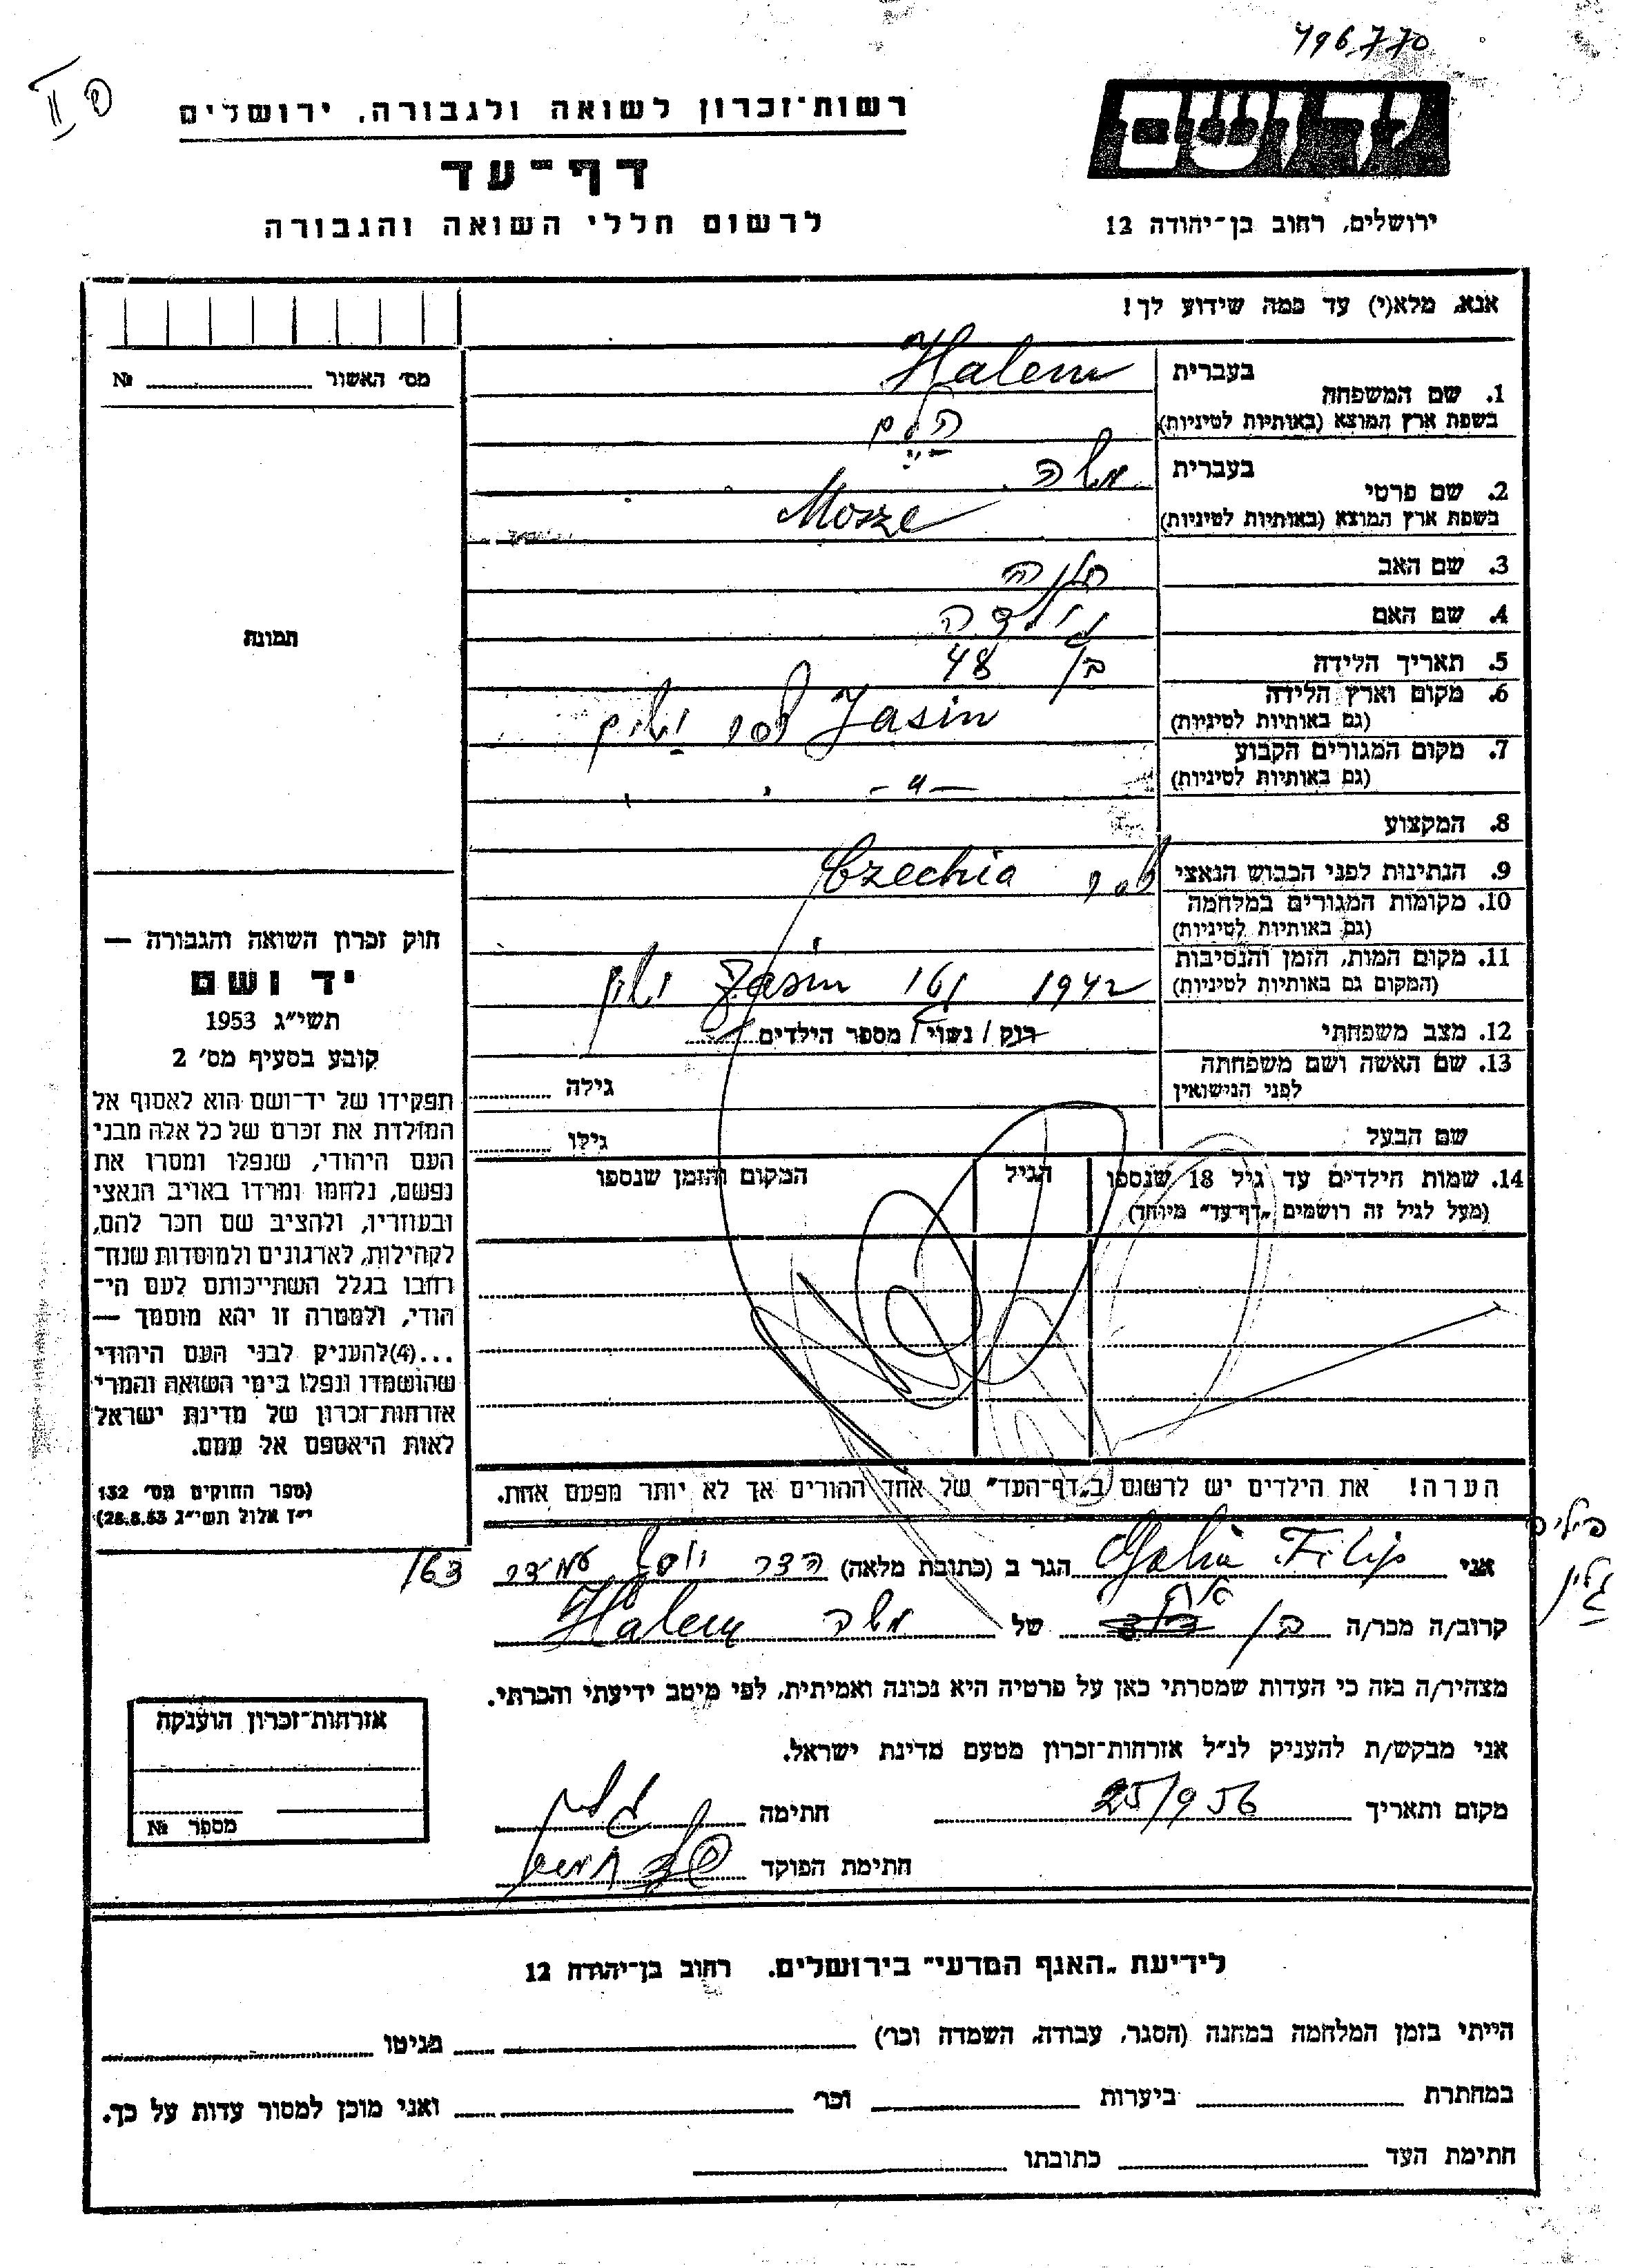 496770
II
רשות־זכרון לשואה ולגבורה, ירושלים
ידושם
דף־עד
לרשום חללי השואה והגבורה
ירושלים, רחוב בן־יהודה 12
אנא, מלא(י) עד כמה שידוע לך!
מס׳ האשור № 
תמונה
1. שם המשפחה
בעברית Halem
בשפת ארץ המוצא (באותיות לטיניות) הלם
2. שם פרטי
בעברית משה
בשפת ארץ המוצא (באותיות לטיניות) Mosze
3. שם האב
4. שם האם
5. תאריך הלידה בן 48
6. מקום וארץ הלידה
(גם באותיות לטיניות) Jasin
7. מקום המגורים הקבוע
(גם באותיות לטיניות) — " —
8. המקצוע
9. הנתינות לפני הכבוש הנאצי Czechia
10. מקומות המגורים במלחמה
(גם באותיות לטיניות)
11. מקום המות, הזמן והנסיבות
(המקום גם באותיות לטיניות) 1942 Jasin
12. מצב משפחתי רוק / נשוי / מספר הילדים
13. שם האשה ושם משפחתה
לפני הנישואין גילה
שם הבעל גילו
14. שמות הילדים עד גיל 18 שנספו
(מעל לגיל זה רושמים „דף־עד" מיוחד)
הגיל
המקום והזמן שנספו
הערה! את הילדים יש לרשום ב„דף־העד" של אחד ההורים אך לא יותר מפעם אחת.
חוק זכרון השואה והגבורה —
יד ושם
תשי״ג 1953
קובע בסעיף מס׳ 2
תפקידו של יד־ושם הוא לאסוף אל
המולדת את זכרם של כל אלה מבני
העם היהודי, שנפלו ומסרו את
נפשם, נלחמו ומרדו באויב הנאצי
ובעוזריו, ולהציב שם וזכר להם,
לקהילות, לארגונים ולמוסדות שנח־
רחבו בגלל השתייכותם לעם הי־
הודי, ולמטרה זו יהא מוסמך —
...(4)להעניק לבני העם היהודי
שהושמדו ונפלו בימי השואה והמרי
אזרחות־זכרון של מדינת ישראל
לאות היאספם אל עמם.
(ספר החוקים מס׳ 132
י״ז אלול תשי״ג 28.8.53)
פיליפ
גלין
אני Filip הגר ב (כתובת מלאה)
קרוב/ה מכר/ה בן אח של משה Halem
מצהיר/ה בזה כי העדות שמסרתי כאן על פרטיה היא נכונה ואמיתית, לפי מיטב ידיעתי והכרתי.
אני מבקש/ת להעניק לנ״ל אזרחות־זכרון מטעם מדינת ישראל.
מקום ותאריך 25/9 56 חתימה
חתימת הפוקד
אזרחות־זכרון הוענקה
מספר № 
לידיעת „האגף המדעי" בירושלים. רחוב בן־יהודה 12
הייתי בזמן המלחמה במחנה (הסגר, עבודה, השמדה וכו׳) בגיטו
במחתרת ביערות וכו׳ ואני מוכן למסור עדות על כך.
חתימת העד כתובתו